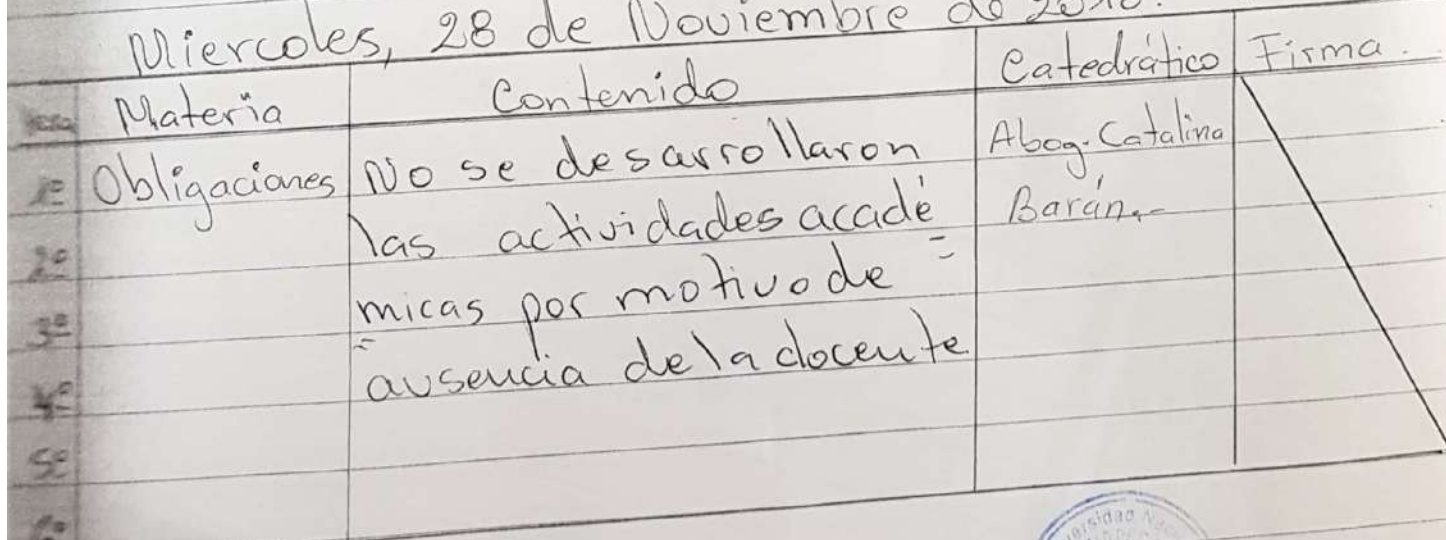 Miercoles, 28 de Noviembre de
Hora Materia Contenido Catedrático Firma.
1º Obligaciones No se desarrollaron Abog. Catalina
2º las actividades acadé Barán.-
3º = micas por motivo de =
4º ausencia de la docente
5º